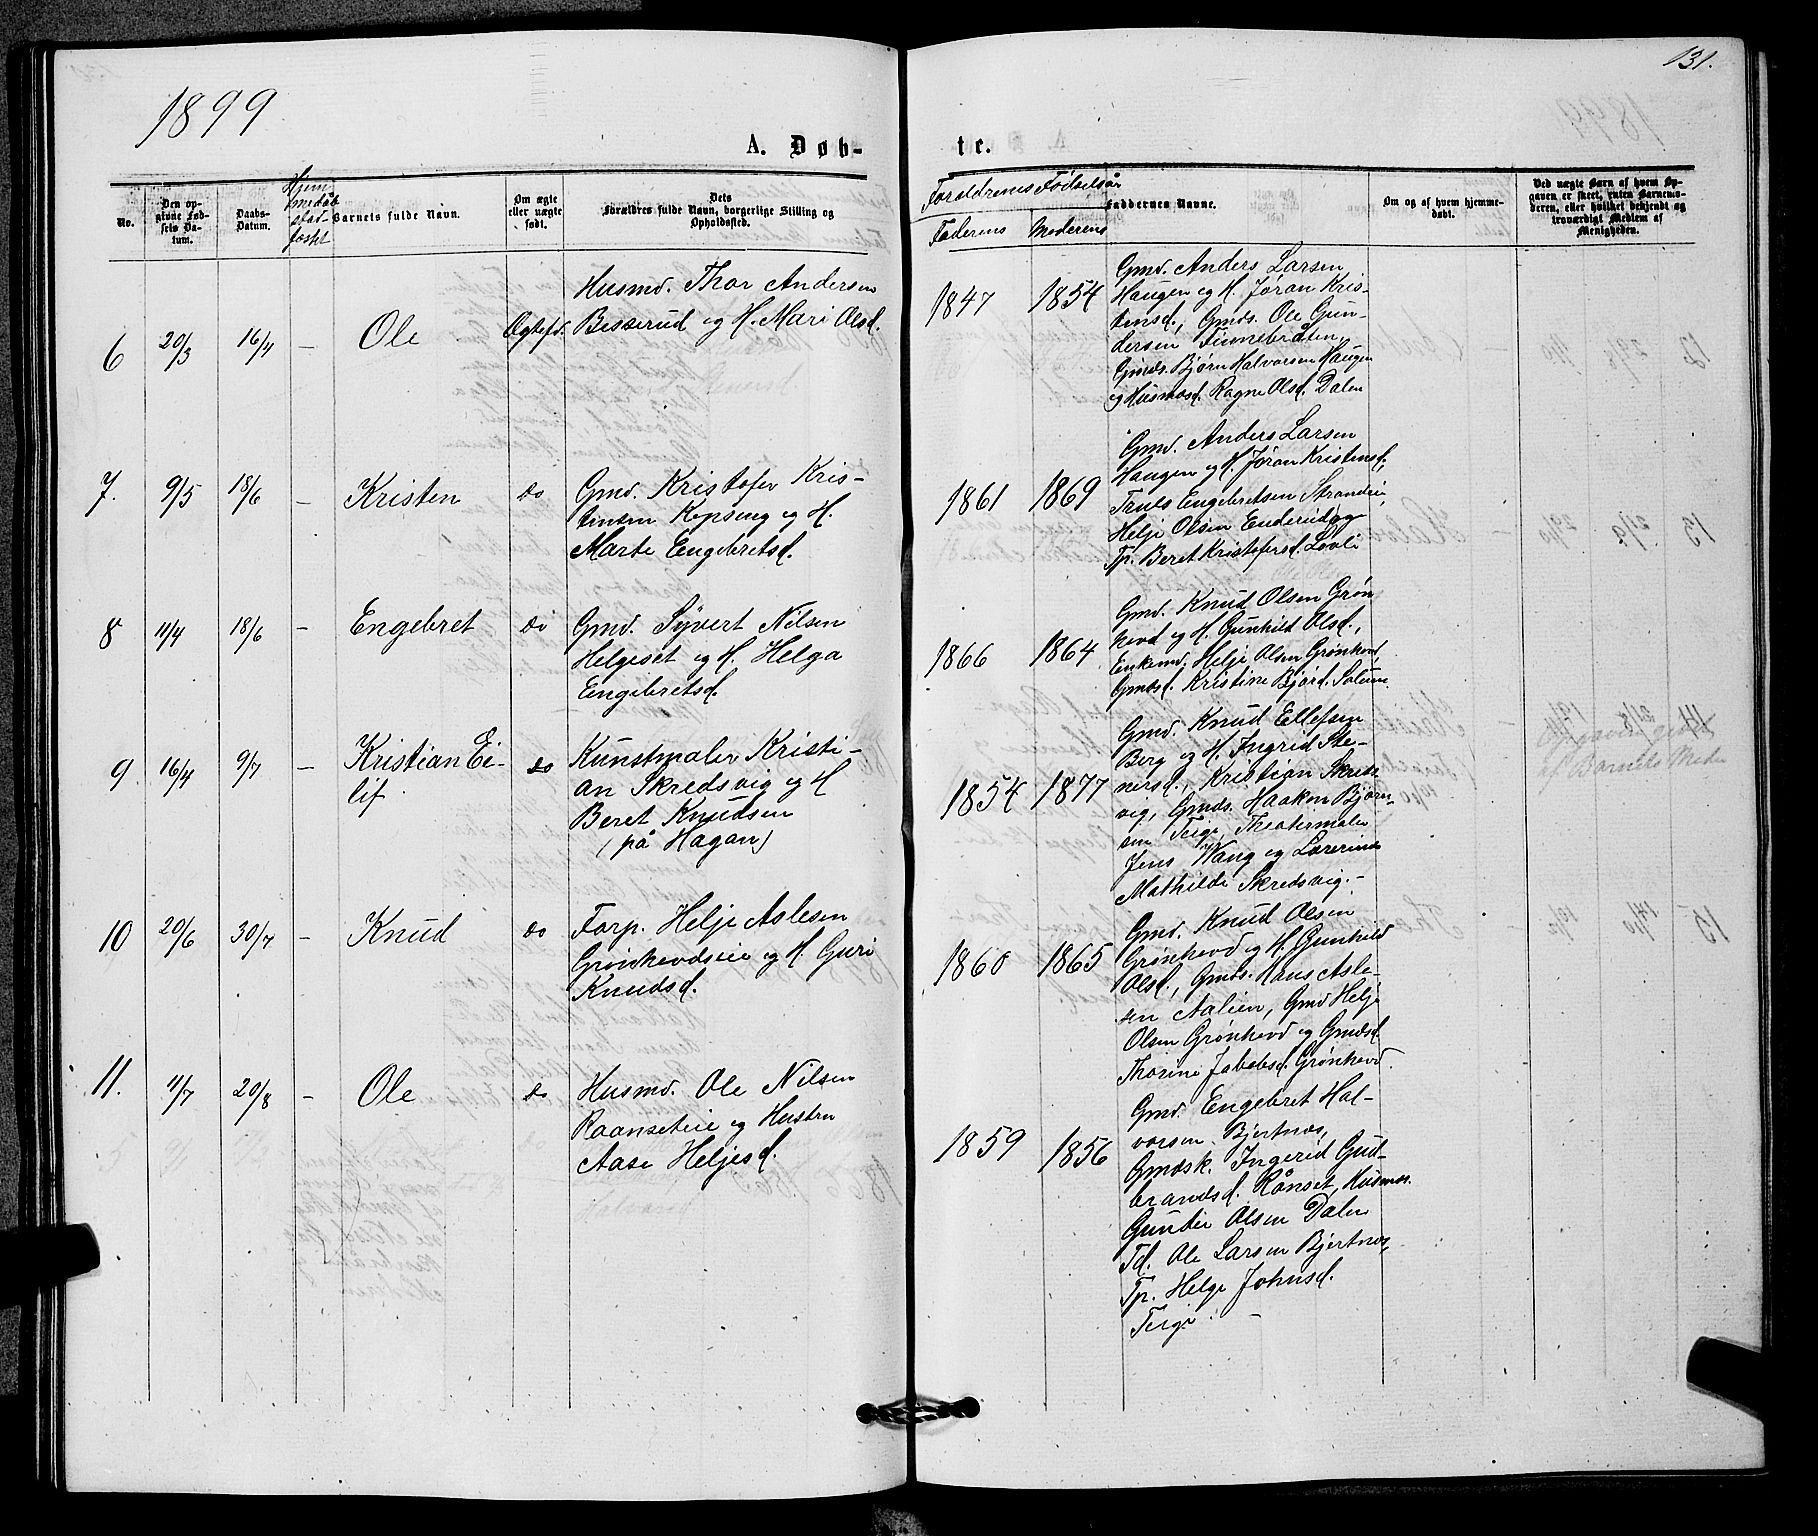 1899
131.
A. Døb-
te.
No.
Den op-
givne Fød-
sels Da-
tum.
Daabs-
Datum.
Hjem
medøb
stad-
fæstet
Barnets fulde Navn.
Om ægte
eller uægte
født.
Dets
Forældres fulde Navn, borgerlige Stilling og
Opholdssted.
Forældrenes Fødselsår
Faderens
Moderens
Faddernes Navne.
Om og af hvem hjemme-
døbt.
Ved uægte Barn af hvem Op-
gaven er skeet, enten Barnemo-
deren, eller hvilket bekjendt og
troværdigt Medlem af
Menigheden.
6
20/3
16/4
–
Ole
Ægtefd.
Husmd. Thor Andersen
Bisserud og H. Mari Olsd.
1847
1854
Gmd. Anders Larsen
Haugen og H. Jøran Kris-
tensd., Gmds. Ole Gun-
dersen Finnebråten,
Gmds. Bjørn Halvorsen Haugen
og Husmdsd. Ragne Olsd. Dalen
7.
9/5
18/6
–
Kristen
do
Gmd. Kristofer Kris-
tensen Kopseng og H.
Marte Engebretsd.
1861
1869
Gmd. Anders Larsen
Haugen og H. Jøran Kristensd.,
Truls Engebretsen Strandeie,
Helje Olsen Enderud og
Tp. Beret Kristofersd. Løvli
8
11/4
18/6
–
Engebret
do
Gmd. Syvert Nilsen
Helgeset og H. Helga
Engebretsd.
1866
1864
Gmd. Knud Olsen Grøn
hovd og H. Gunhild Olsd.,
Enkemd. Helje Olsen Grønhovd,
Gmdsd. Kristine Bjørd. Solum
9
16/4
9/7
–
Kristian Ei-
lif
do
Kunstmaler Kristi-
an Skredsvig og H
Beret Knudsen
(på Hagan)
1854
1877
Gmd. Knud Ellefsen
Berg og H. Ingrid Ste-
nersd., Kristian Skreds
vig, Gmds. Haakon Bjørn-
sen Teige, Theatermaler
Jens Wang og Lærerinde
Mathilde Skredsvig.–
10
20/6
30/7
–
Knud
do
Forp. Helje Aslesen
Grønhovdseie og H. Guri
Knudsd.
1860
1865
Gmd. Knud Olsen
Grønhovd og H. Gunhild
Olsd., Gmds. Hans Asle-
sen Aalien, Gmd Helje
Olsen Grønhovd og Gmdsd
Thorine Jakobsd. Grønhovd.
11.
11/7
20/8
–
Ole
do
Husmd. Ole Nilsen
Raanseteie og Hustru
Aase Heljesd.
1859
1856
Gmd. Engebret Hal-
vorsen Bjertnæs,
Gmdsk. Ingerid Gud-
brandsd. Rånset, Husmds.
Gunder Olsen Dalen
Td. Ole Larsen Bjertnæs,
Tp. Helge Johnsd.
Teige.–